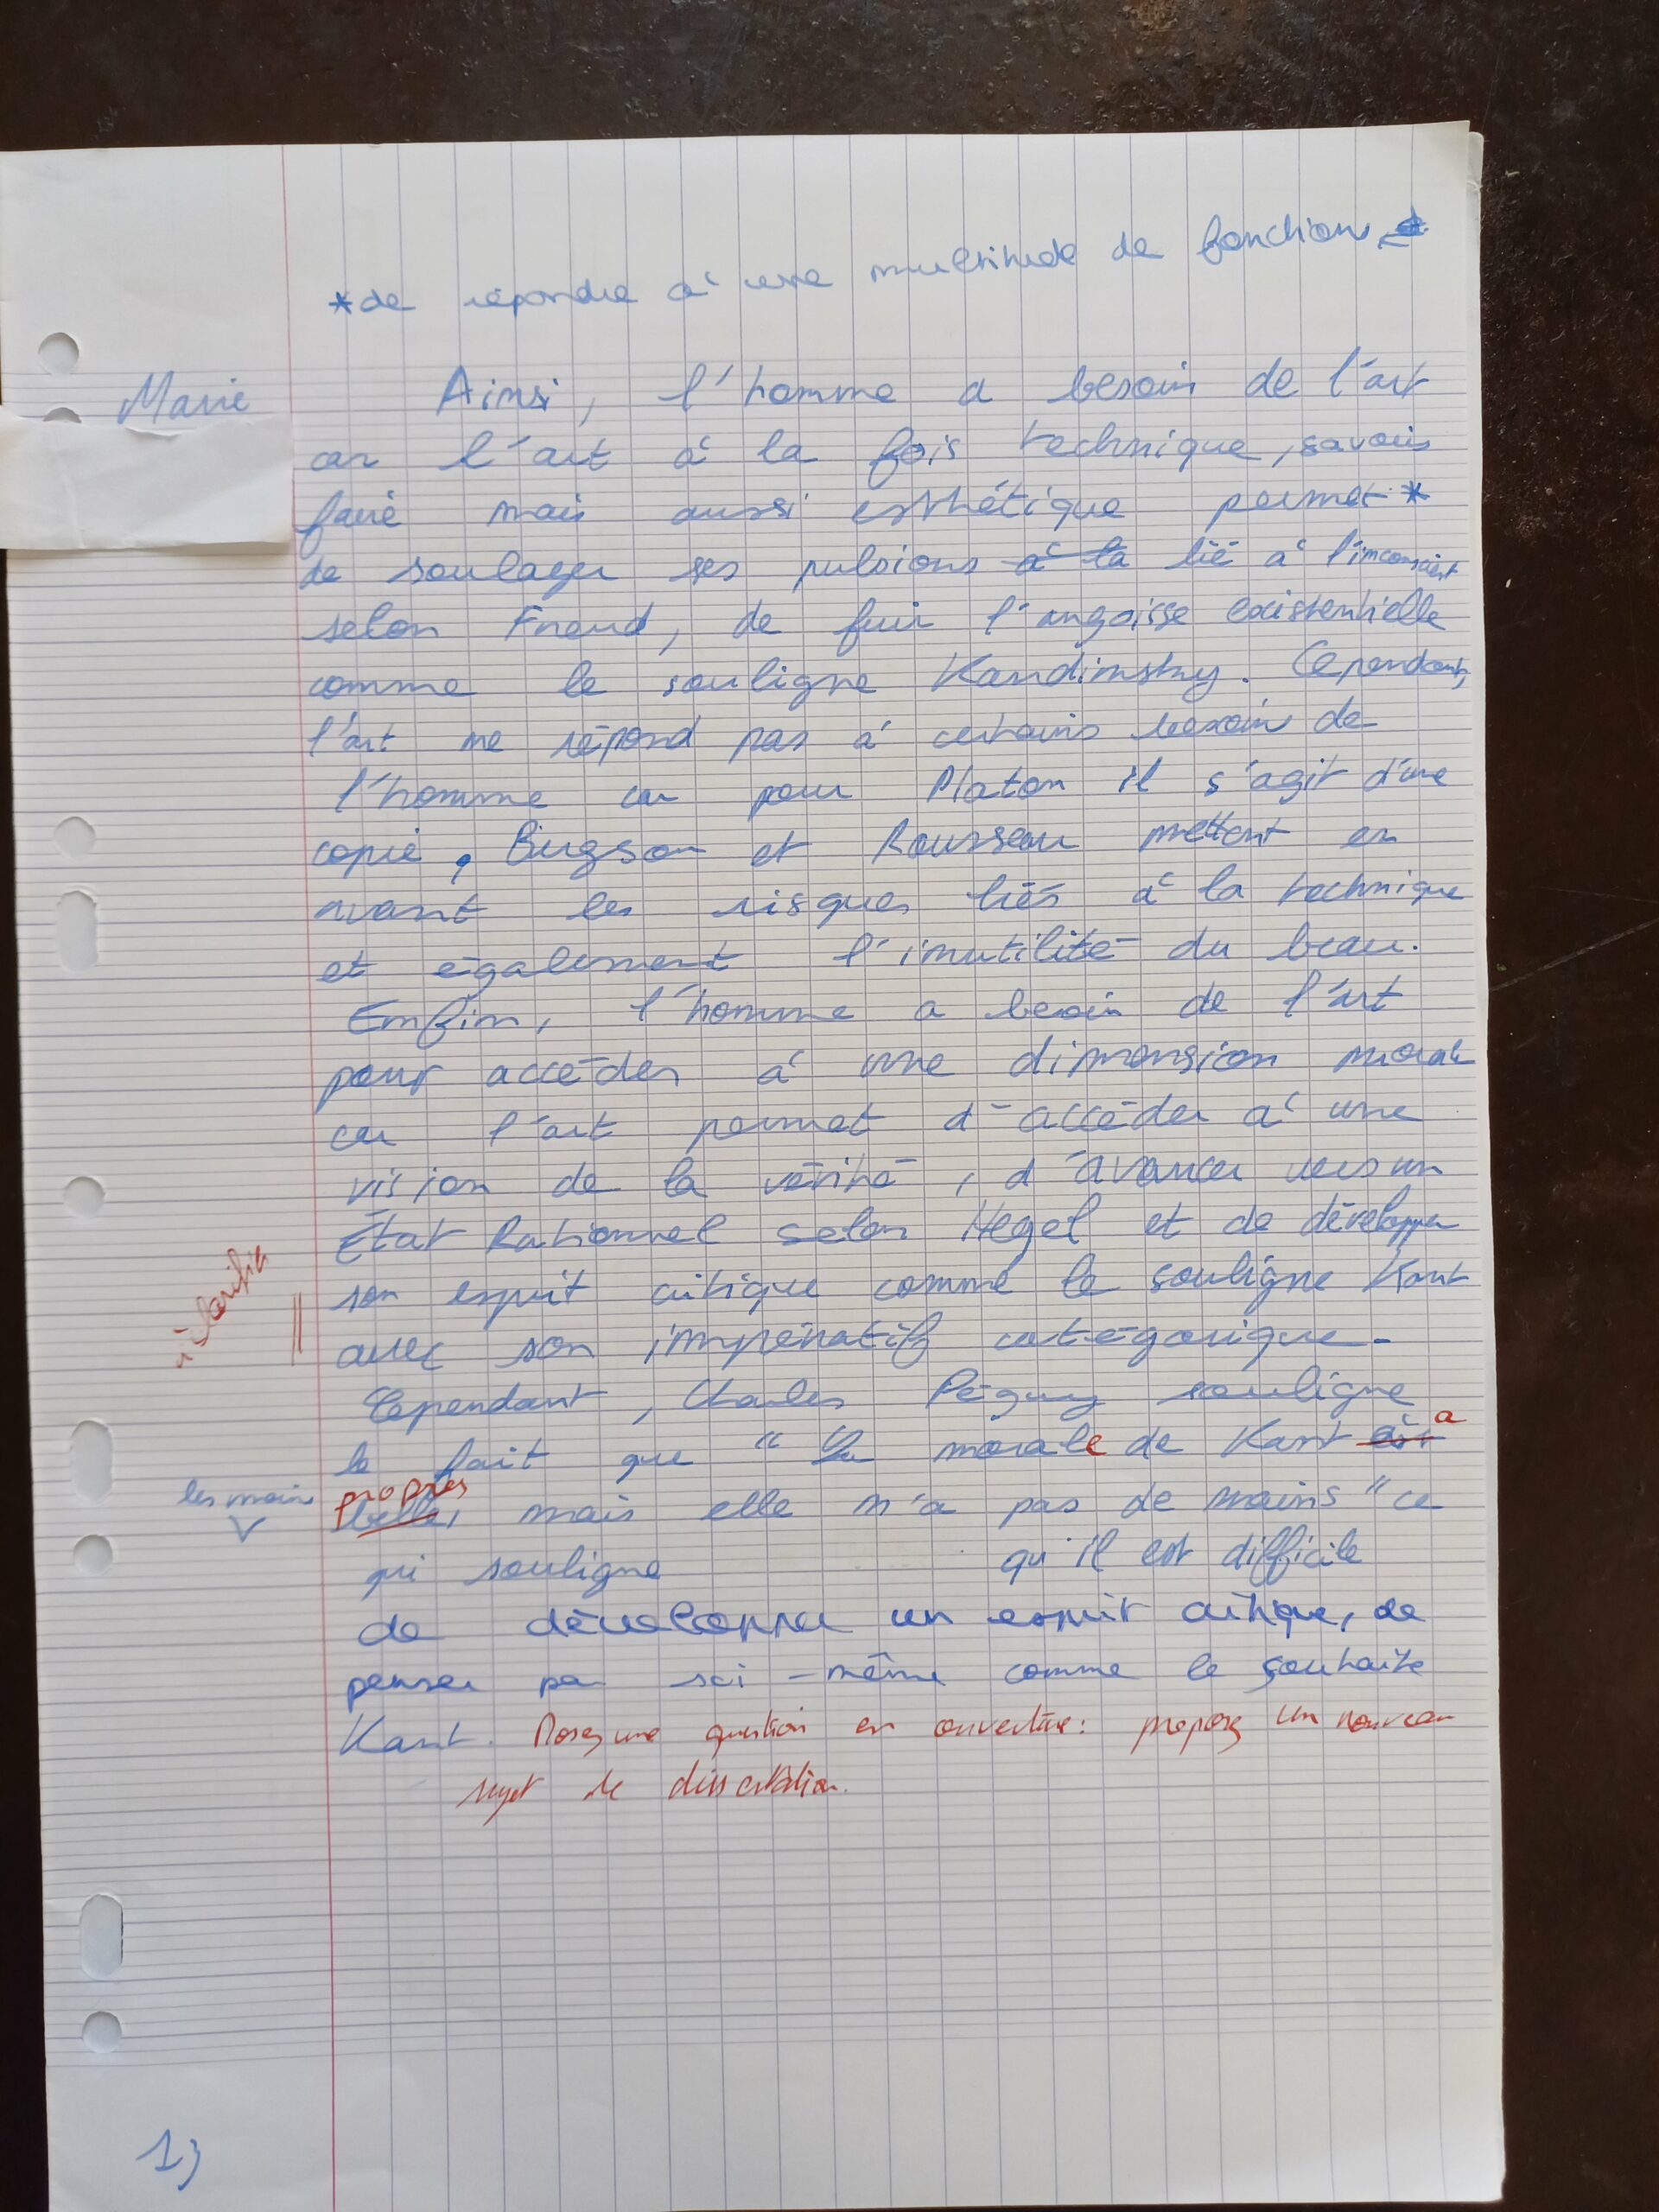 *de répondre à une multitude de fonctions
Marie
Ainsi, l'homme a besoin de l'art
car l'art à la fois technique, savoir
faire mais aussi esthétique permet *
de soulager ses pulsions à la lié à l'inconscient
selon Freud, de fuir l'angoisse existentielle
comme le souligne Kandinsky. Cependant,
l'art ne répond pas à certains besoin de
l'homme car pour Platon il s'agit d'une
copie, Bergson et Rousseau mettent en
avant les risques liés à la technique
et également l'inutilité du beau.
Enfin, l'homme a besoin de l'art
pour accéder à une dimension morale
car l'art permet d'accéder à une
vision de la vérité, d'avancer vers un
État Rationnel selon Hegel et de développer
son esprit critique comme le souligne Kant
à clarifier
avec son impératif catégorique.
Cependant, Charles Péguy souligne
le fait que "la morale de Kant est a
les mains propres
belle, mais elle n'a pas de mains" ce
qui souligne qu'il est difficile
de développer un esprit critique, de
penser par soi-même comme le souhaite
Kant. Posez une question en ouverture: proposez un nouveau
sujet de dissertation.
13